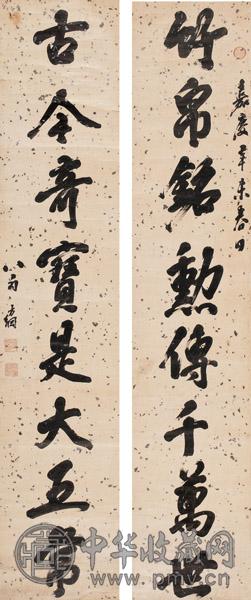 嘉慶辛未春日
竹帛銘勳傳千萬世
古今奇寶是大五
八旬
中华收藏网
www.pmv.cn